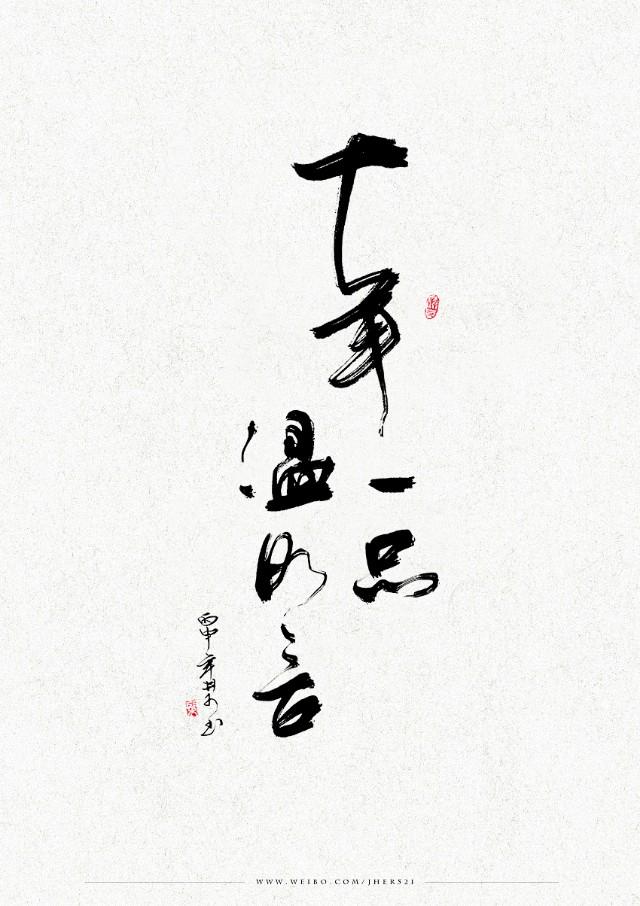 十年一品
温如言
丙申年 书
WWW.WEIBO.COM/JHER521